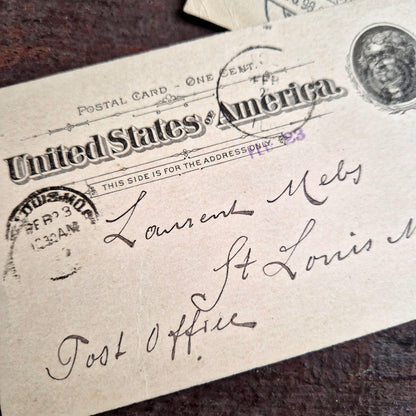 POSTAL CARD - ONE CENT.
United States of America.
THIS SIDE IS FOR THE ADDRESS ONLY.
FEB
23
FEB 3
Laurent Mebs
St Louis M
Post Office